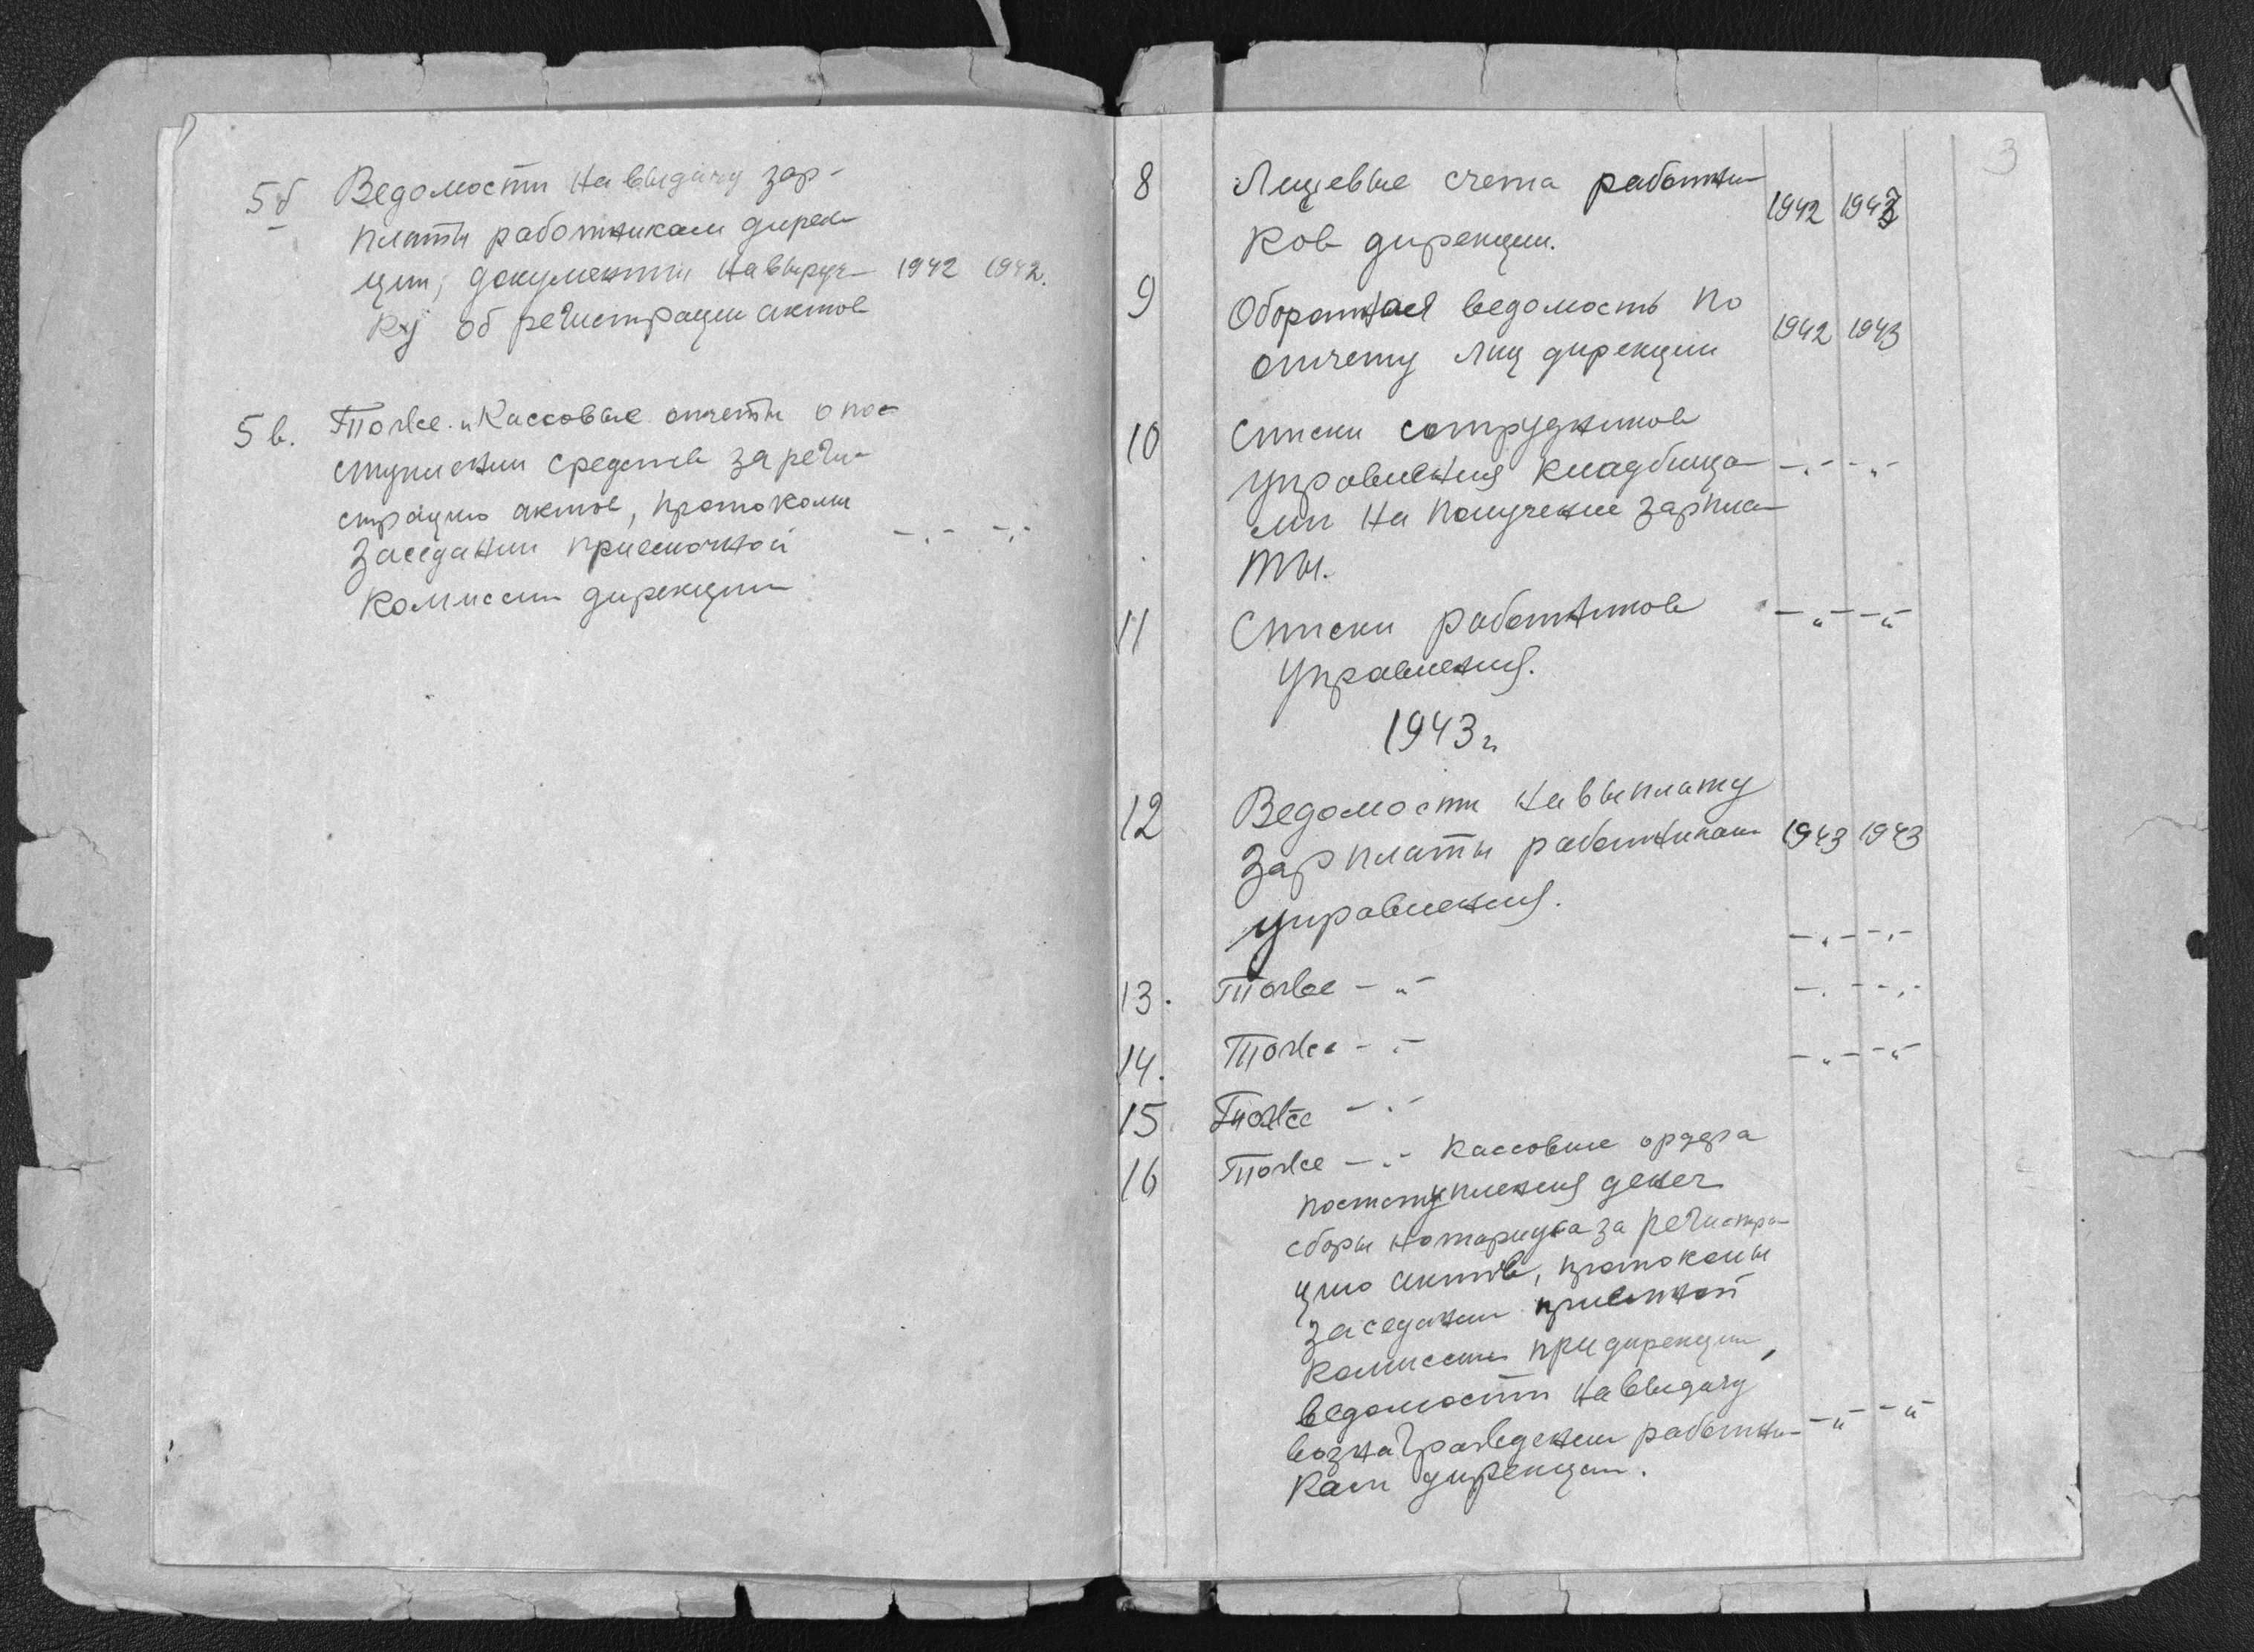 5б Ведомости на выдачу зар-
платы работникам дирек-
ции, документы на выруч- 1942 1942.
ку об регистрации актов
5в. Тоже. „Кассовые отчеты о пос-
туплении средств за реги-
страцию актов, протоколы
заседании приемочной -„- -„-
комиссии дирекции
3
8 Лицевые счета работни- 1942 1943
ков дирекции.
9 Оборотная ведомость по 1942 1943
отчету лиц дирекции
10 Списки сотрудников
управления кладбища- -„- -„-
ми на получение зарпла-
ты.
11 Списки работников -„- -„-
управления.
1943 г
12 Ведомости на выплату
зарплаты работникам 1943 1943
управления.
-„- -„-
13. Тоже -„- -„- -„-
14. Тоже -„- -„- -„-
15. Тоже -„-
16 Тоже -„- Кассовые ордера
поступления денег
сборы нотариуса за регистра-
цию актов, протоколы
заседании приемной
комиссии при дирекции,
ведомости на выдачу
вознаграждении работни- -„- -„-
кам дирекции.